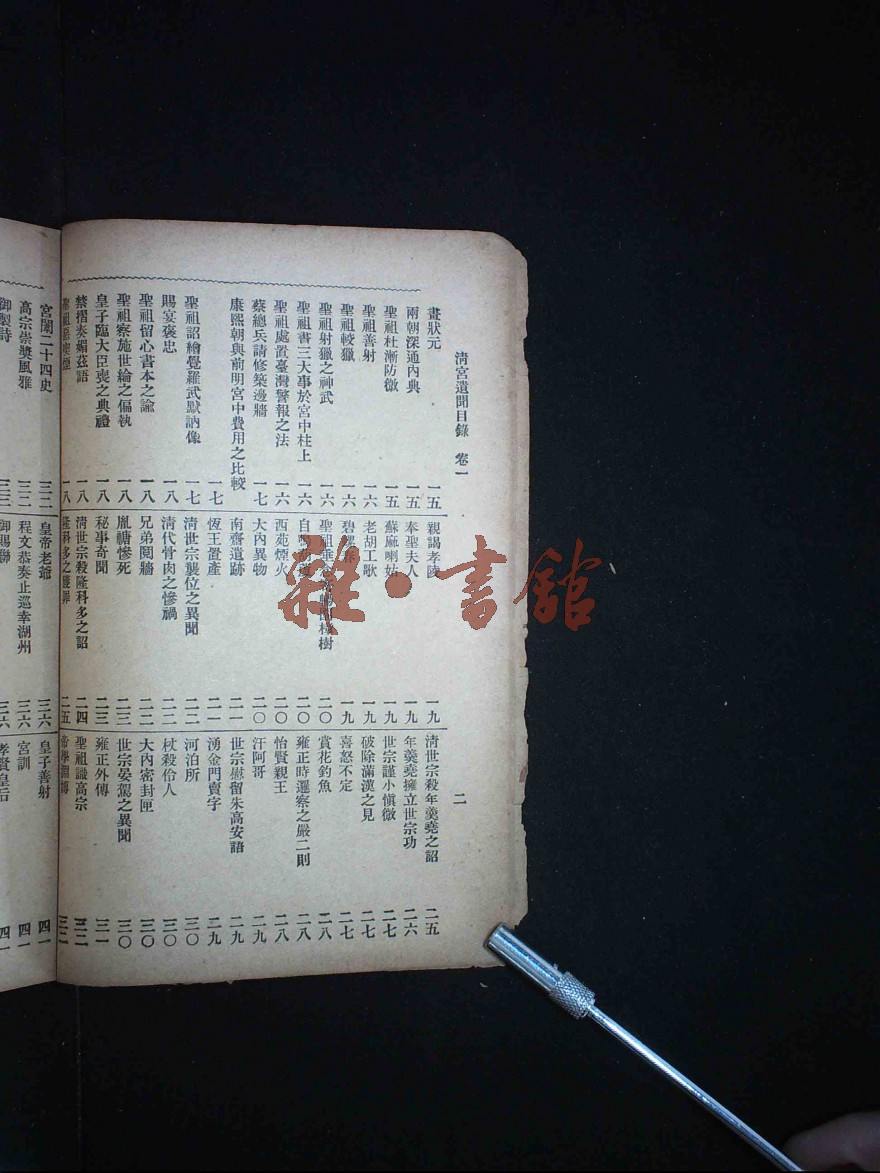 清宮遺聞目錄 卷一 二
畫狀元 一五
兩朝深通內典 一五
聖祖杜漸防微 一五
聖祖善射 一六
聖祖較獵 一六
聖祖射獵之神武 一六
聖祖書三大事於宮中柱上 一六
聖祖處置臺灣警報之法 一六
蔡總兵請修築邊牆 一七
康熙朝與前明宮中費用之比較 一七
聖祖詔繪覺羅武默訥像 一七
賜宴褒忠 一八
聖祖留心書本之諭 一八
聖祖察施世綸之偏執 一八
皇子臨大臣喪之典禮 一八
禁摺奏媚茲語 一八
聖祖 一八
親謁孝陵 一九
奉聖夫人 一九
蘇麻喇姑 一九
老胡工歌 一九
碧 一九
聖祖垂 樹 二〇
自鳴 二〇
西苑煙火 二〇
大內異物 二〇
南齋遺跡 二一
恆王置產 二一
清世宗襲位之異聞 二二
清代骨肉之慘禍 二二
兄弟鬩牆 二二
胤禟慘死 二三
秘事奇聞 二三
清世宗殺隆科多之詔 二四
隆科多之獲罪 二五
清世宗殺年羹堯之詔 二五
年羹堯擁立世宗功 二六
世宗謹小慎微 二七
破除滿漢之見 二七
喜怒不定 二七
賞花釣魚 二八
雍正時邏察之嚴二則 二八
怡賢親王 二八
汗阿哥 二九
世宗慰留朱高安語 二九
湧金門賣字 二九
河泊所 三〇
杖殺伶人 三〇
大內密封匣 三〇
世宗晏駕之異聞 三〇
雍正外傳 三一
聖祖識高宗 三二
帝學淵 三二
宮闈二十四史 三二
高宗崇獎風雅 三二
御製詩 三三
皇帝老爺 三六
程文恭奏止巡幸湖州 三六
御賜聯 三六
皇子善射 四一
宮訓 四一
孝賢皇后 四一
雜·書館